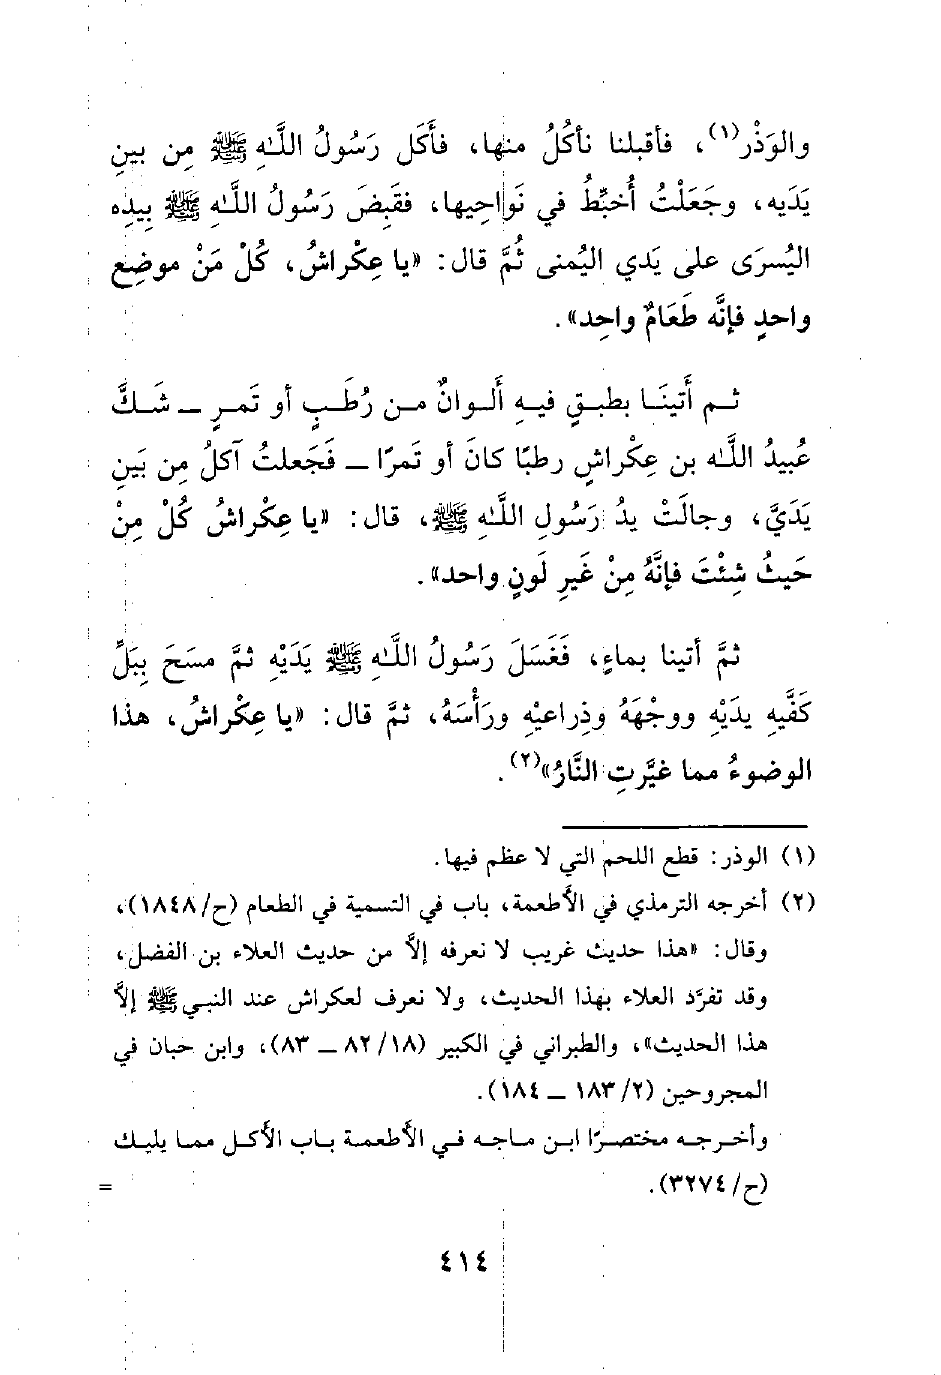 والوَذْر(١)، فأقبلنا نأكُلُ منها، فأَكَل رَسُولُ اللَّـهِ ﷺ مِن بينِ
يَدَيه، وجَعَلْتُ أُخبِّطُ في نَواحِيها، فقَبِضَ رَسُولُ اللَّـهِ ﷺ بِيدِه
اليُسرَى على يَدي اليُمنى ثُمَّ قال: «يا عِكْراشُ، كُلْ مَنْ موضِع
واحدٍ فإنَّه طَعَامٌ واحِد».
ثـم أَتينَـا بطبـقٍ فيـهِ أَلـوانٌ مـن رُطَـبٍ أو تَمـرٍ ــ شَـكَّ
عُبيدُ اللَّـه بن عِكْراشٍ رطبًا كانَ أو تَمرًا ــ فَجَعلتُ آكلُ مِن بَينِ
يَدَيَّ، وجالَتْ يدُ رَسُولِ اللَّـهِ ﷺ، قال: «يا عِكْراشُ كُلْ مِنْ
حَيثُ شِئْتَ فإنَّهُ مِنْ غَيرِ لَونٍ واحد».
ثمَّ أتينا بماءٍ، فَغَسَلَ رَسُولُ اللَّـهِ ﷺ يَدَيْهِ ثمَّ مسَحَ بِبَلِّ
كَفَّيهِ يديْهِ ووجْهَهُ وذِراعيْهِ ورَأْسَهُ، ثمَّ قال: «يا عِكْراشُ، هذا
الوضوءُ مما غيَّرتِ النَّارُ»(٢).
(١) الوذر: قطع اللحم التي لا عظم فيها.
(٢) أخرجه الترمذي في الأطعمة، باب في التسمية في الطعام (ح/١٨٤٨)،
وقال: «هذا حديث غريب لا نعرفه إلاَّ من حديث العلاء بن الفضل،
وقد تفرَّد العلاء بهذا الحديث، ولا نعرف لعكراش عند النبـي ﷺ إلاَّ
هذا الحديث»، والطبراني في الكبير (١٨/ ٨٢ ــ ٨٣)، وابن حبان في
المجروحين (٢/ ١٨٣ ــ ١٨٤).
وأخـرجـه مختصـرًا ابـن مـاجـه فـي الأطعمـة بـاب الأكـل ممـا يليـك
(ح/ ٣٢٧٤). =
٤١٤